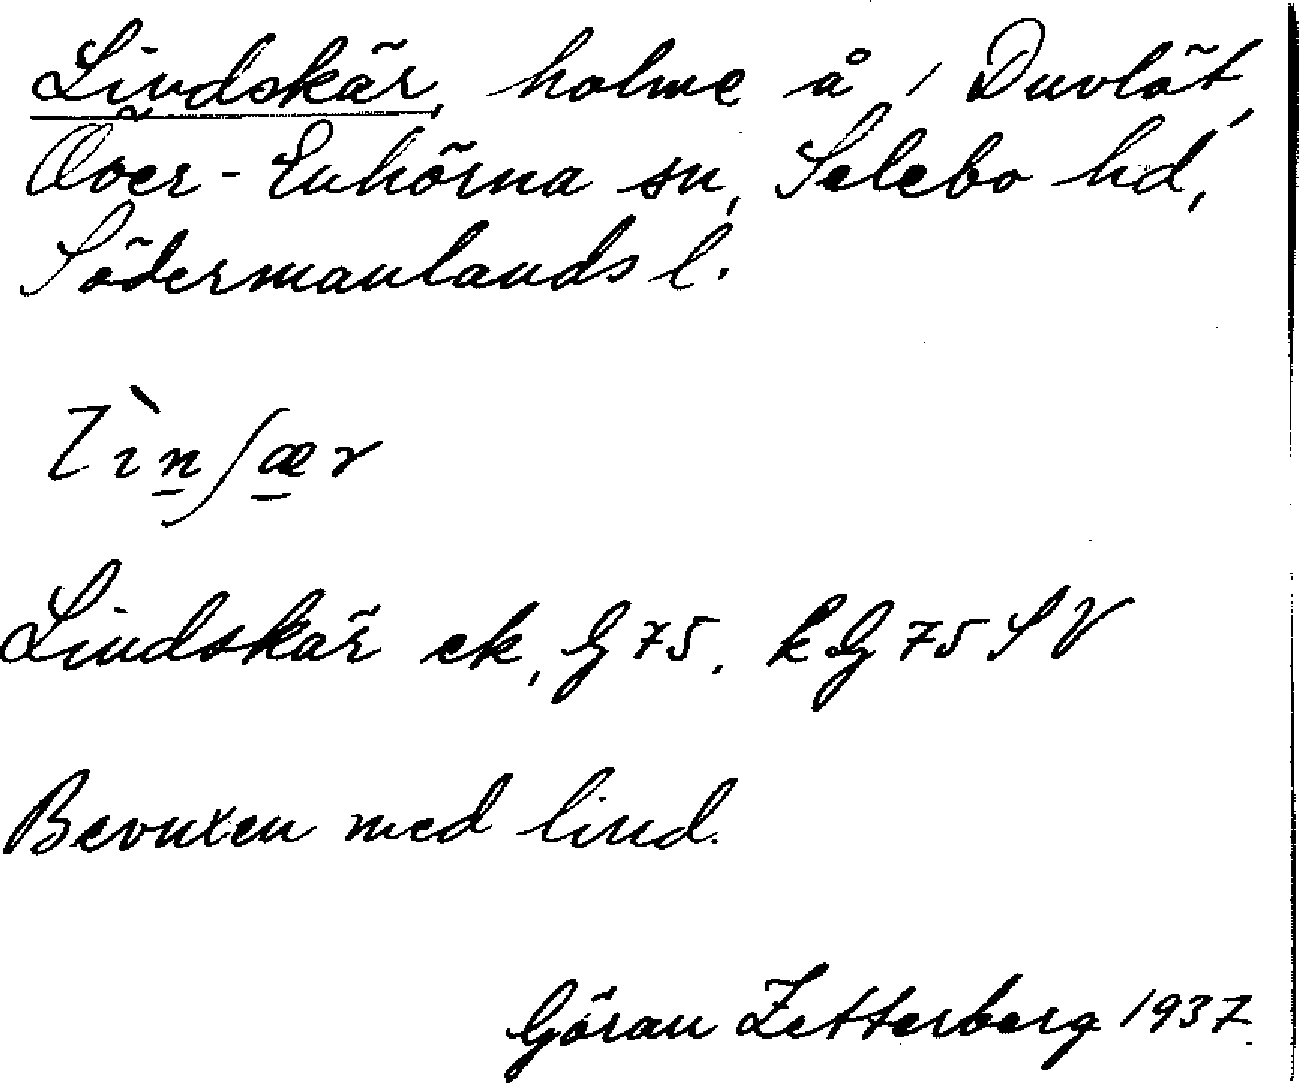 Lindskär, holme å 1 Duvlöt,
Över-Enhörna sn, Selebo hd,
Södermanlands l.
lìnʃær
Lindskär ek, G 75. k G 75 SV
Bevuxen med lind.
Göran Zetterberg 1937.